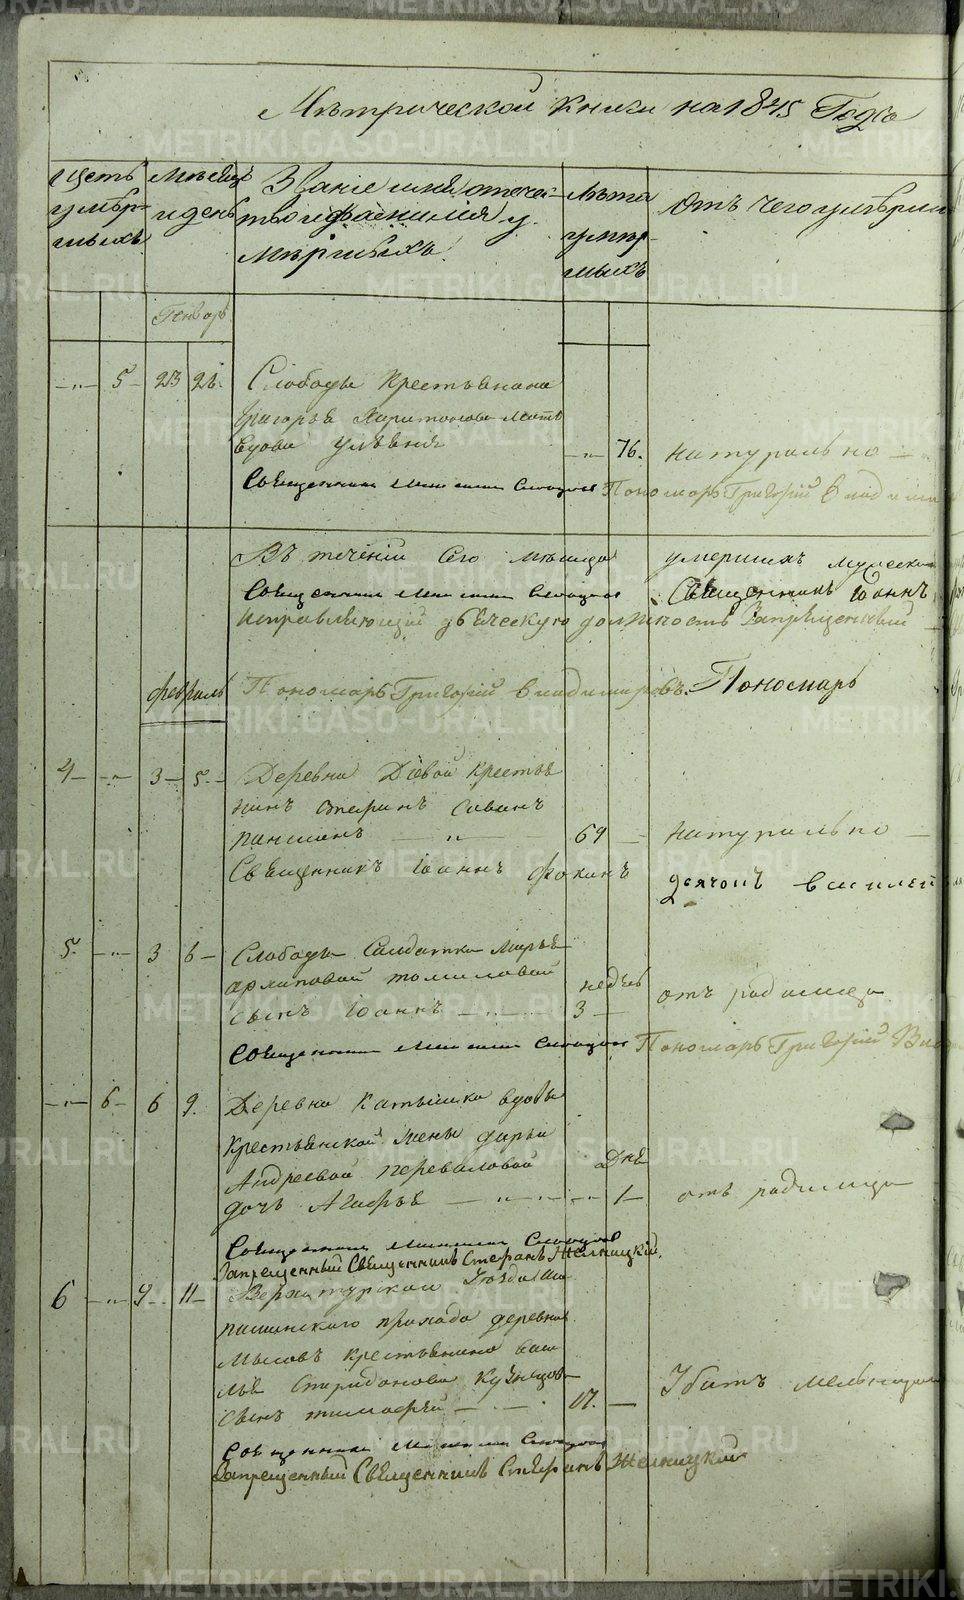 Метрической книги на 1845 Годъ
Щетъ умѣр-шыхъ
Мѣсяцъ и день
Званіе имя отечес-тво и фамилія у-мѣршыхъ
Лѣта умѣр-шыхъ
Отъ чего умѣрли
Генварь
5 23 26. Слободы Крестьянина
Григорья Харитонова мать
вдова Ульянія 76. натурально
Священникъ Пономарь Григорій Владимировъ
Въ теченіи Сего мѣсяца умершихъ мужеска
Священникъ Священникъ Іоаннъ
исправляющій дьяческую должность Запрещенный
февраль Пономарь Григорій Владимировъ. Пономарь
4 3 5 Деревни Діевой крестья
нинъ Савинъ
Паншинъ 69 натурально
Священникъ Іоаннъ Фокинъ дьячокъ Василей
5. 3 6 Слободы Солдатки Марьи
Архиповой Томиловой
сынъ Іоаннъ недель 3 отъ родимца
Священникъ Пономарь Григорій
6 6 9. Деревни Катышки вдовы
Крестьянской жены Дарьи
Андреевой Переваловой
дочь Агафья Дня 1 отъ родимца
Священникъ
Запрещенный Священникъ Стефанъ Желницкій.
6 9 11 Верхотурскаго Уезда
прихода деревни
Мысовъ крестьянина Васи
лья Спиридонова Кузнецов
сынъ Тимофей 17. Убитъ мельницей
Священникъ
Запрещенный Священникъ Стефанъ Желницкій
METRIKI.GASO-URAL.RU